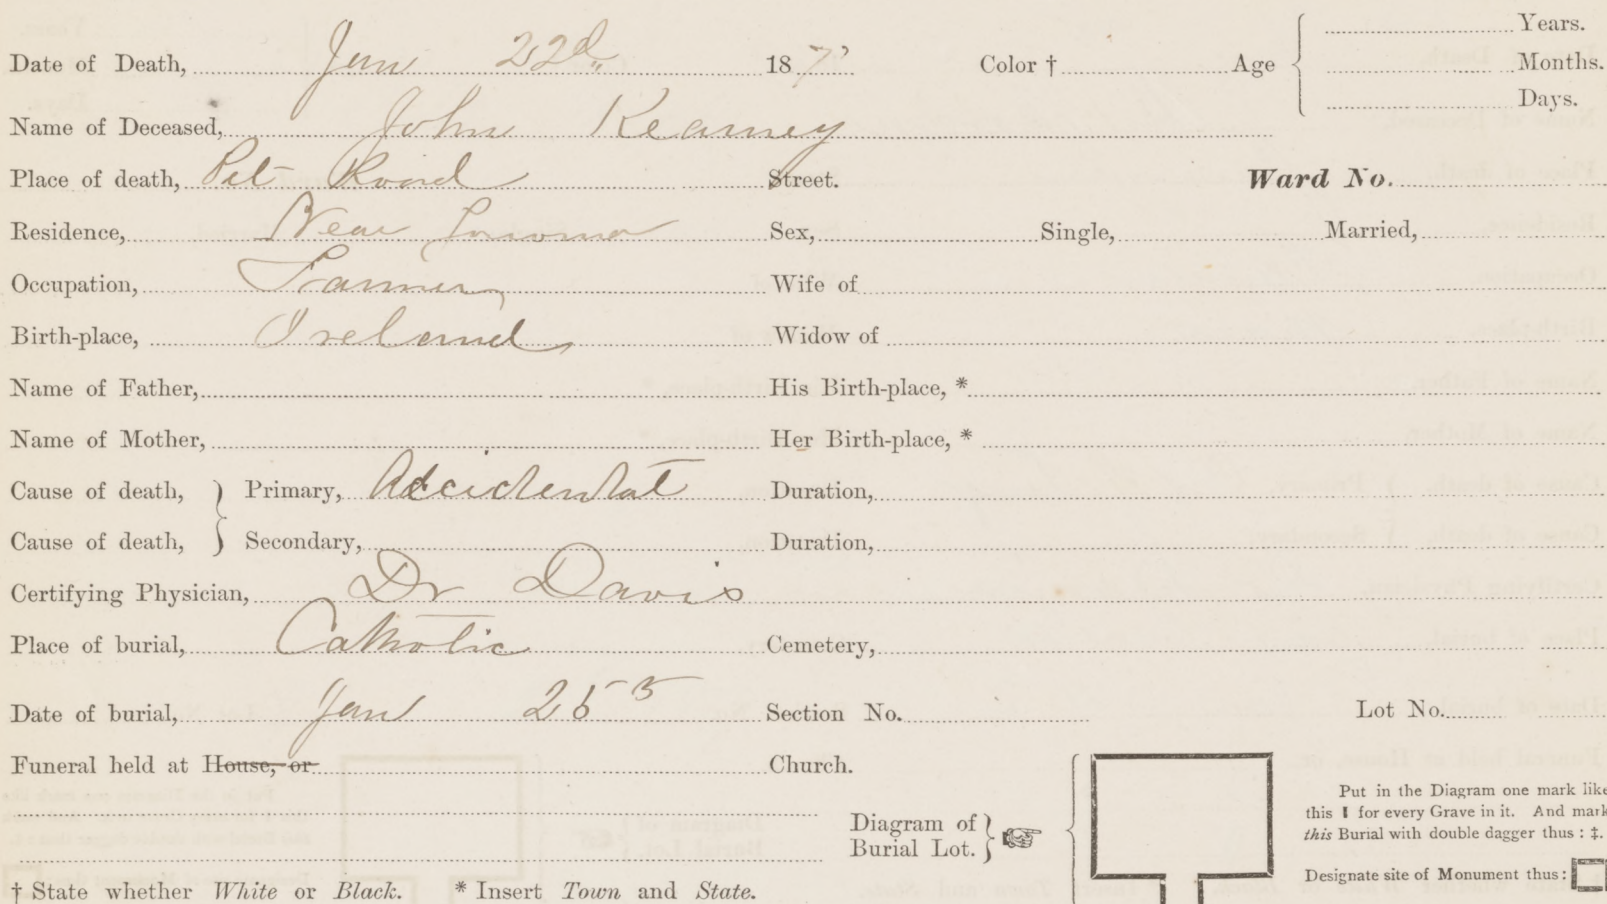 Years.
Date of Death, Jan 22d 187 Color † Age Months.
Days.
Name of Deceased, John Kearney
Place of death, Pet Road Street. Ward No.
Residence, Near Sonoma Sex, Single, Married,
Occupation, Farmer Wife of
Birth-place, Ireland Widow of
Name of Father, His Birth-place, *
Name of Mother, Her Birth-place, *
Cause of death, Primary, Accidental Duration,
Cause of death, Secondary, Duration,
Certifying Physician, Dr Davis
Place of burial, Catholic Cemetery,
Date of burial, Jan 25 Section No. Lot No.
Funeral held at House, or Church.
Put in the Diagram one mark like
this ❙ for every Grave in it. And mark
this Burial with double dagger thus : ‡.
Diagram of
Burial Lot.
Designate site of Monument thus :
† State whether White or Black. * Insert Town and State.